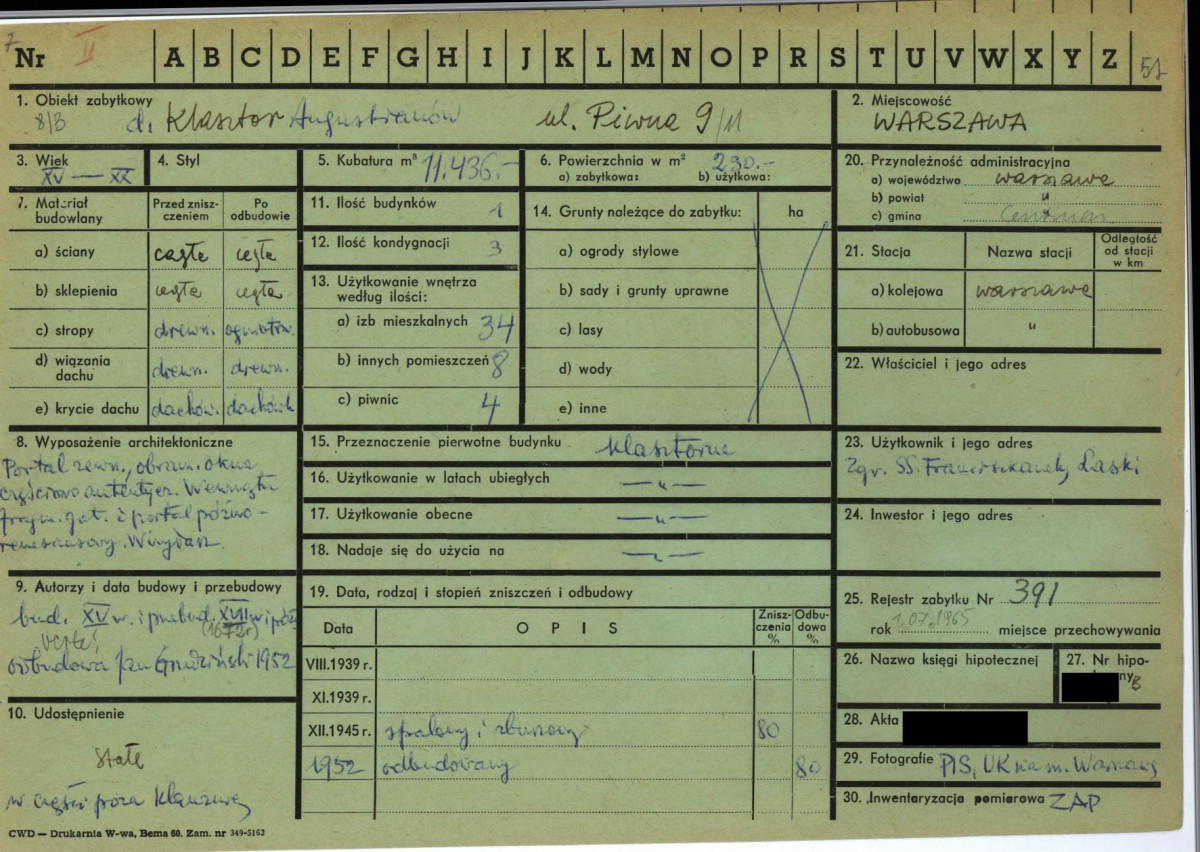 7
Nr II A B C D E F G H I J K L M N O P R S T U V W X Y Z 51
1. Obiekt zabytkowy
8/3 d. Klasztor Augustianów ul. Piwna 9/11
2. Miejscowość
WARSZAWA
3. Wiek
XV — XX
4. Styl
5. Kubatura m³ 11.436.-
6. Powierzchnia w m² 290.-
a) zabytkowa: b) użytkowa:
7. Materiał budowlany
Przed zniszczeniem
Po odbudowie
a) ściany cegła cegła
b) sklepienia cegła cegła
c) stropy drewn. ogniotrw.
d) wiązania dachu drewn. drewn.
e) krycie dachu dachów. dachówk
8. Wyposażenie architektoniczne
Portal zewn., obram. okna
częściowo autentycz. Wewnątrz
fragm. got. i portal późno-
renesansowy.
9. Autorzy i data budowy i przebudowy
bud. XV w. i przebud. XVII w i póź
(1672r)
odbudowa Jan Grudziński 1952
10. Udostępnienie
Stałe
w części poza klauzurą
11. Ilość budynków 1
12. Ilość kondygnacji 3
13. Użytkowanie wnętrza
według ilości:
a) izb mieszkalnych 34
b) innych pomieszczeń 8
c) piwnic 4
14. Grunty należące do zabytku: ha
a) ogrody stylowe
b) sady i grunty uprawne
c) lasy
d) wody
e) inne
15. Przeznaczenie pierwotne budynku klasztorne
16. Użytkowanie w latach ubiegłych —„—
17. Użytkowanie obecne —„—
18. Nadaje się do użycia na —„—
19. Data, rodzaj i stopień zniszczeń i odbudowy
Data OPIS Zniszczenia % Odbudowa %
VIII.1939 r.
XI.1939 r.
XII.1945 r. spalony i zburzony 80
1952 odbudowany 80
20. Przynależność administracyjna
a) województwo warszawa
b) powiat „
c) gmina
21. Stacja Nazwa stacji Odległość od stacji w km
a) kolejowa warszawa
b) autobusowa „
22. Właściciel i jego adres
23. Użytkownik i jego adres
Zgr. SS. Franciszkanek, Laski
24. Inwestor i jego adres
25. Rejestr zabytku Nr 391
rok 1.07.1965 miejsce przechowywania
26. Nazwa księgi hipotecznej
27. Nr hipo-
ny
28. Akta
29. Fotografie PIS, UK na m. Warszawę
30. Inwentaryzacja pomiarowa ZAP
CWD — Drukarnia W-wa, Bema 60. Zam. nr 349-5162